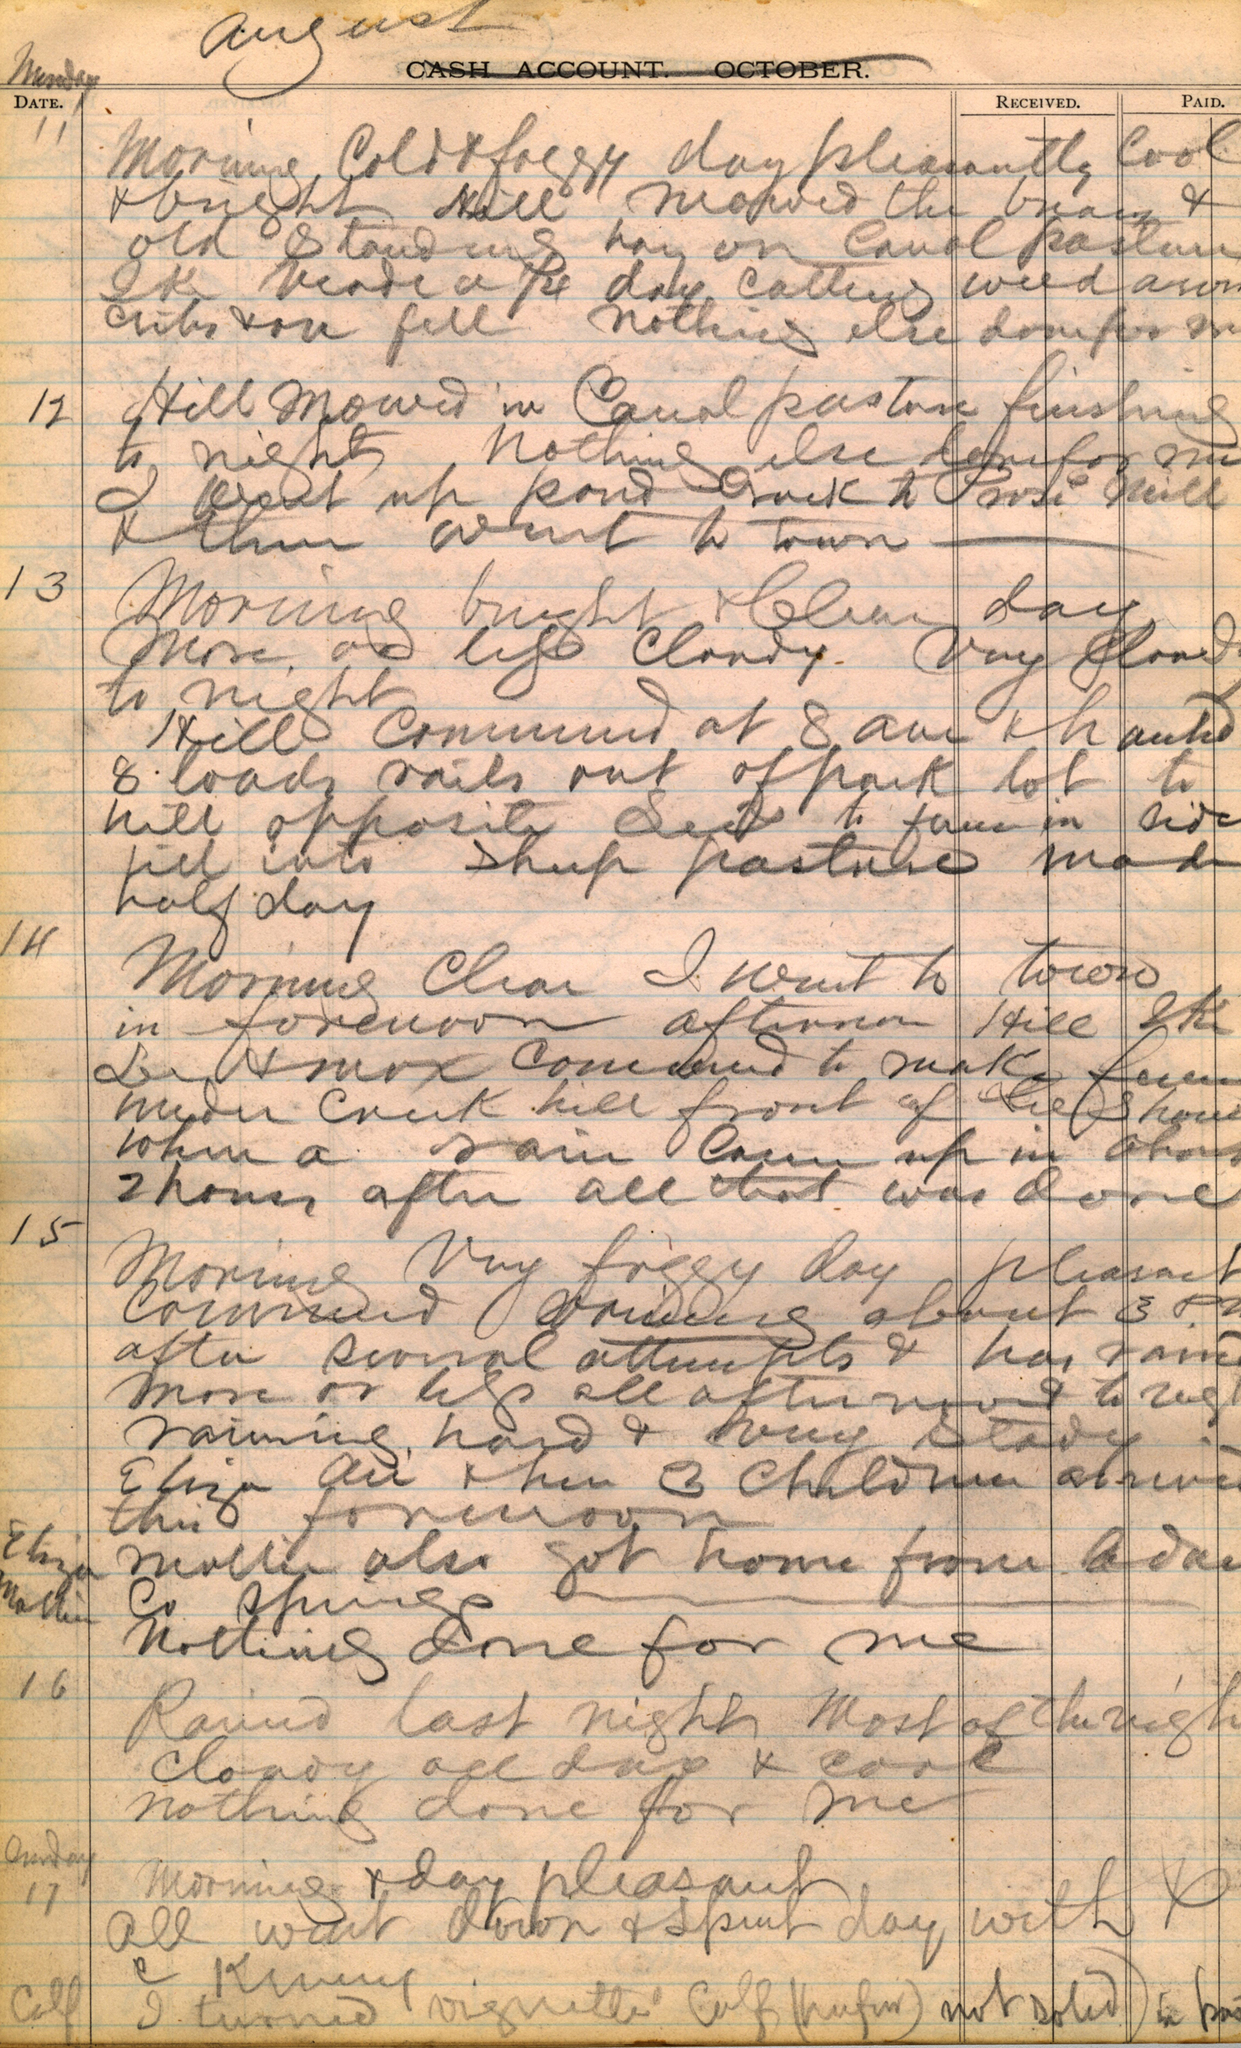 August
Monday
CASH ACCOUNT. OCTOBER.
DATE. RECEIVED. PAID.
11 Morning Cold & foggy day pleasantly Cool
& bright Hill mowed the &
old Standing hay on Canal pasture
Ike made a day Cutting weed
cribs & on fill nothing else done for me
12 Hill Mowed in Canal pasture finishing
to night Nothing else done for me
I went up pond Creek to Mill
& then went to town
13 Morning bright & Clear day
More or less Cloudy. Very Cloudy
to night
Hill Commenced at 8 am & hauled
8 loads rails out of park lot to
hill opposite to fence in side
hill into Sheep pasture made
half day
14 Morning Clear I went to town
in forenoon afternoon Hill Ike
Lee & max Commenced to make fence
under Creek hill front of
when a rain Came up in about
2 hours after all that was done
15 Morning Very foggy day pleasant
Commenced raining about 3 P.M
after several attempts & has rained
more or less all afternoon & to night
raining hard & very steady
Eliza Ann & her 3 Children arrived
this forenoon
Eliza Mollie also got home from Adams
Mollie Co Springs
Nothing done for me
16 Rained last night Most of the night
Cloudy all day & cool
nothing done for me
Sunday
17 Morning & day pleasant
All went down & spent day with
C Kinney
Calf I turned vignette Calf (heifer) not in